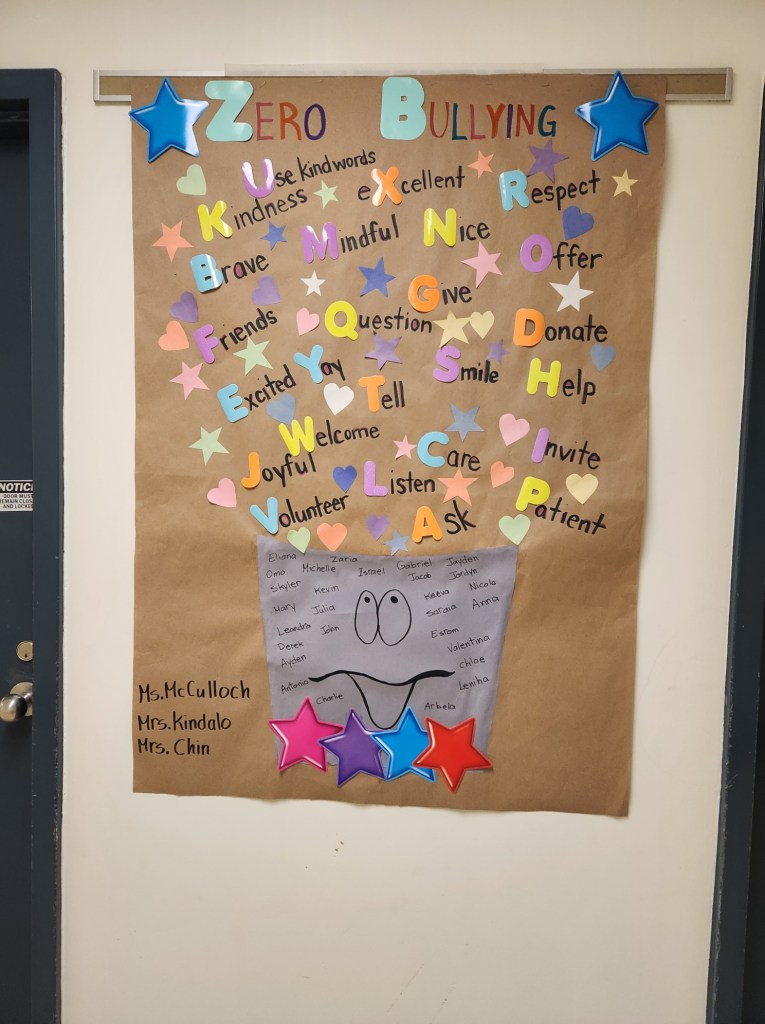 ZERO BULLYING
Use kind words
Kindness
eXcellent
Respect
Brave
Mindful
Nice
Offer
Give
Friends
Question
Donate
Excited
Yay
Tell
Smile
Help
Welcome
Joyful
Listen
Care
Invite
Volunteer
Ask
Patient
Eliana
Zaria
Omo
Michelle
Israel
Gabriel
Jayden
Jacob
Jordyn
Skyler
Kevin
Keeva
Nicola
Mary
Julia
Saraia
Anna
Leandra
John
Esrom
Derek
Valentina
Ayden
Chloe
Antonio
Charlie
Arbela
Leniha
Ms. McCulloch
Mrs. Kindalo
Mrs. Chin
NOTICE
DOOR MUST
REMAIN CLOSED
AND LOCKED